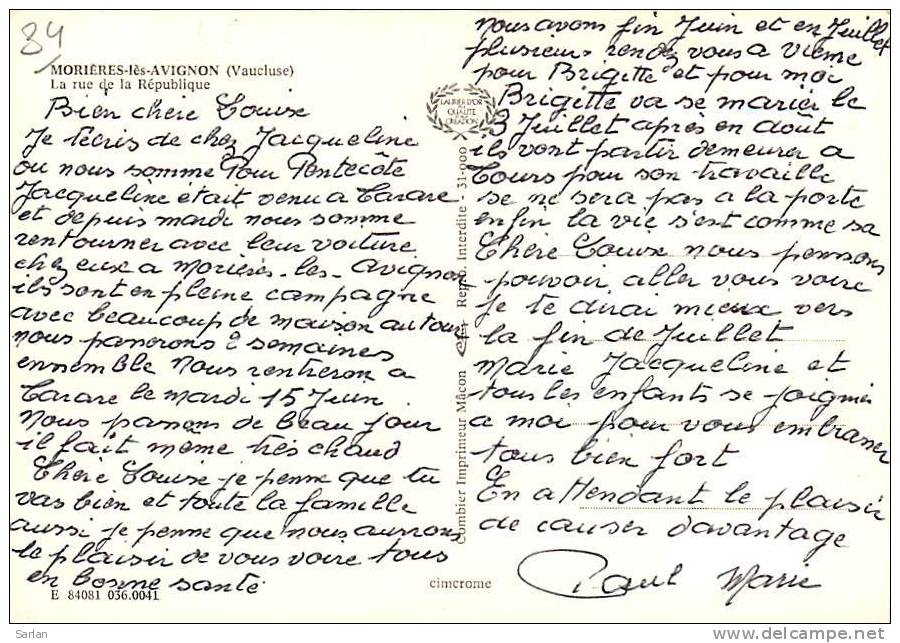 84
MORIÈRES-lès-AVIGNON (Vaucluse)
La rue de la République
Bien chère Louise
Je t'écris de chez Jacqueline
ou nous somme Pour Pentecôte
Jacqueline était venu a Tarare
et depuis mardi nous somme
rentourner avec leur voiture
chez eux a Morières-les-Avignon
ils sont en pleine campagne
avec beaucoup de maison autour
nous passerons 2 semaines
ensemble Nous rentreron a
Tarare le mardi 15 Juin
Nous passons de beau jour
il fait même très chaud
Chère Louise je pense que tu
vas bien et toute la famille
aussi je pense que nous aurons
le plaisir de vous voire tous
en bonne santé
E 84081 036.0041
LAURIER D'OR
DE LA QUALITÉ
CRÉATION
Combier Imprimeur Mâcon
Repro. Interdite - 31-000
cimcrome
nous avons fin Juin et en Juillet
plusieurs rendez vous a Vienne
pour Brigitte et pour moi
Brigitte va se marier le
3 Juillet après en août
ils vont partir demeurer a
Tours pour son travaille
se ne sera pas a la porte
enfin la vie s'est comme sa
Chère Louise nous pensons
pouvoir aller vous voire
Je te dirai mieux vers
la fin de Juillet
Marie Jacqueline et
tous les enfants se joignes
a moi pour vous embrasser
tous bien fort
En attendant le plaisir
de causer davantage
Paul Marie
Sarlan
www.delcampe.net